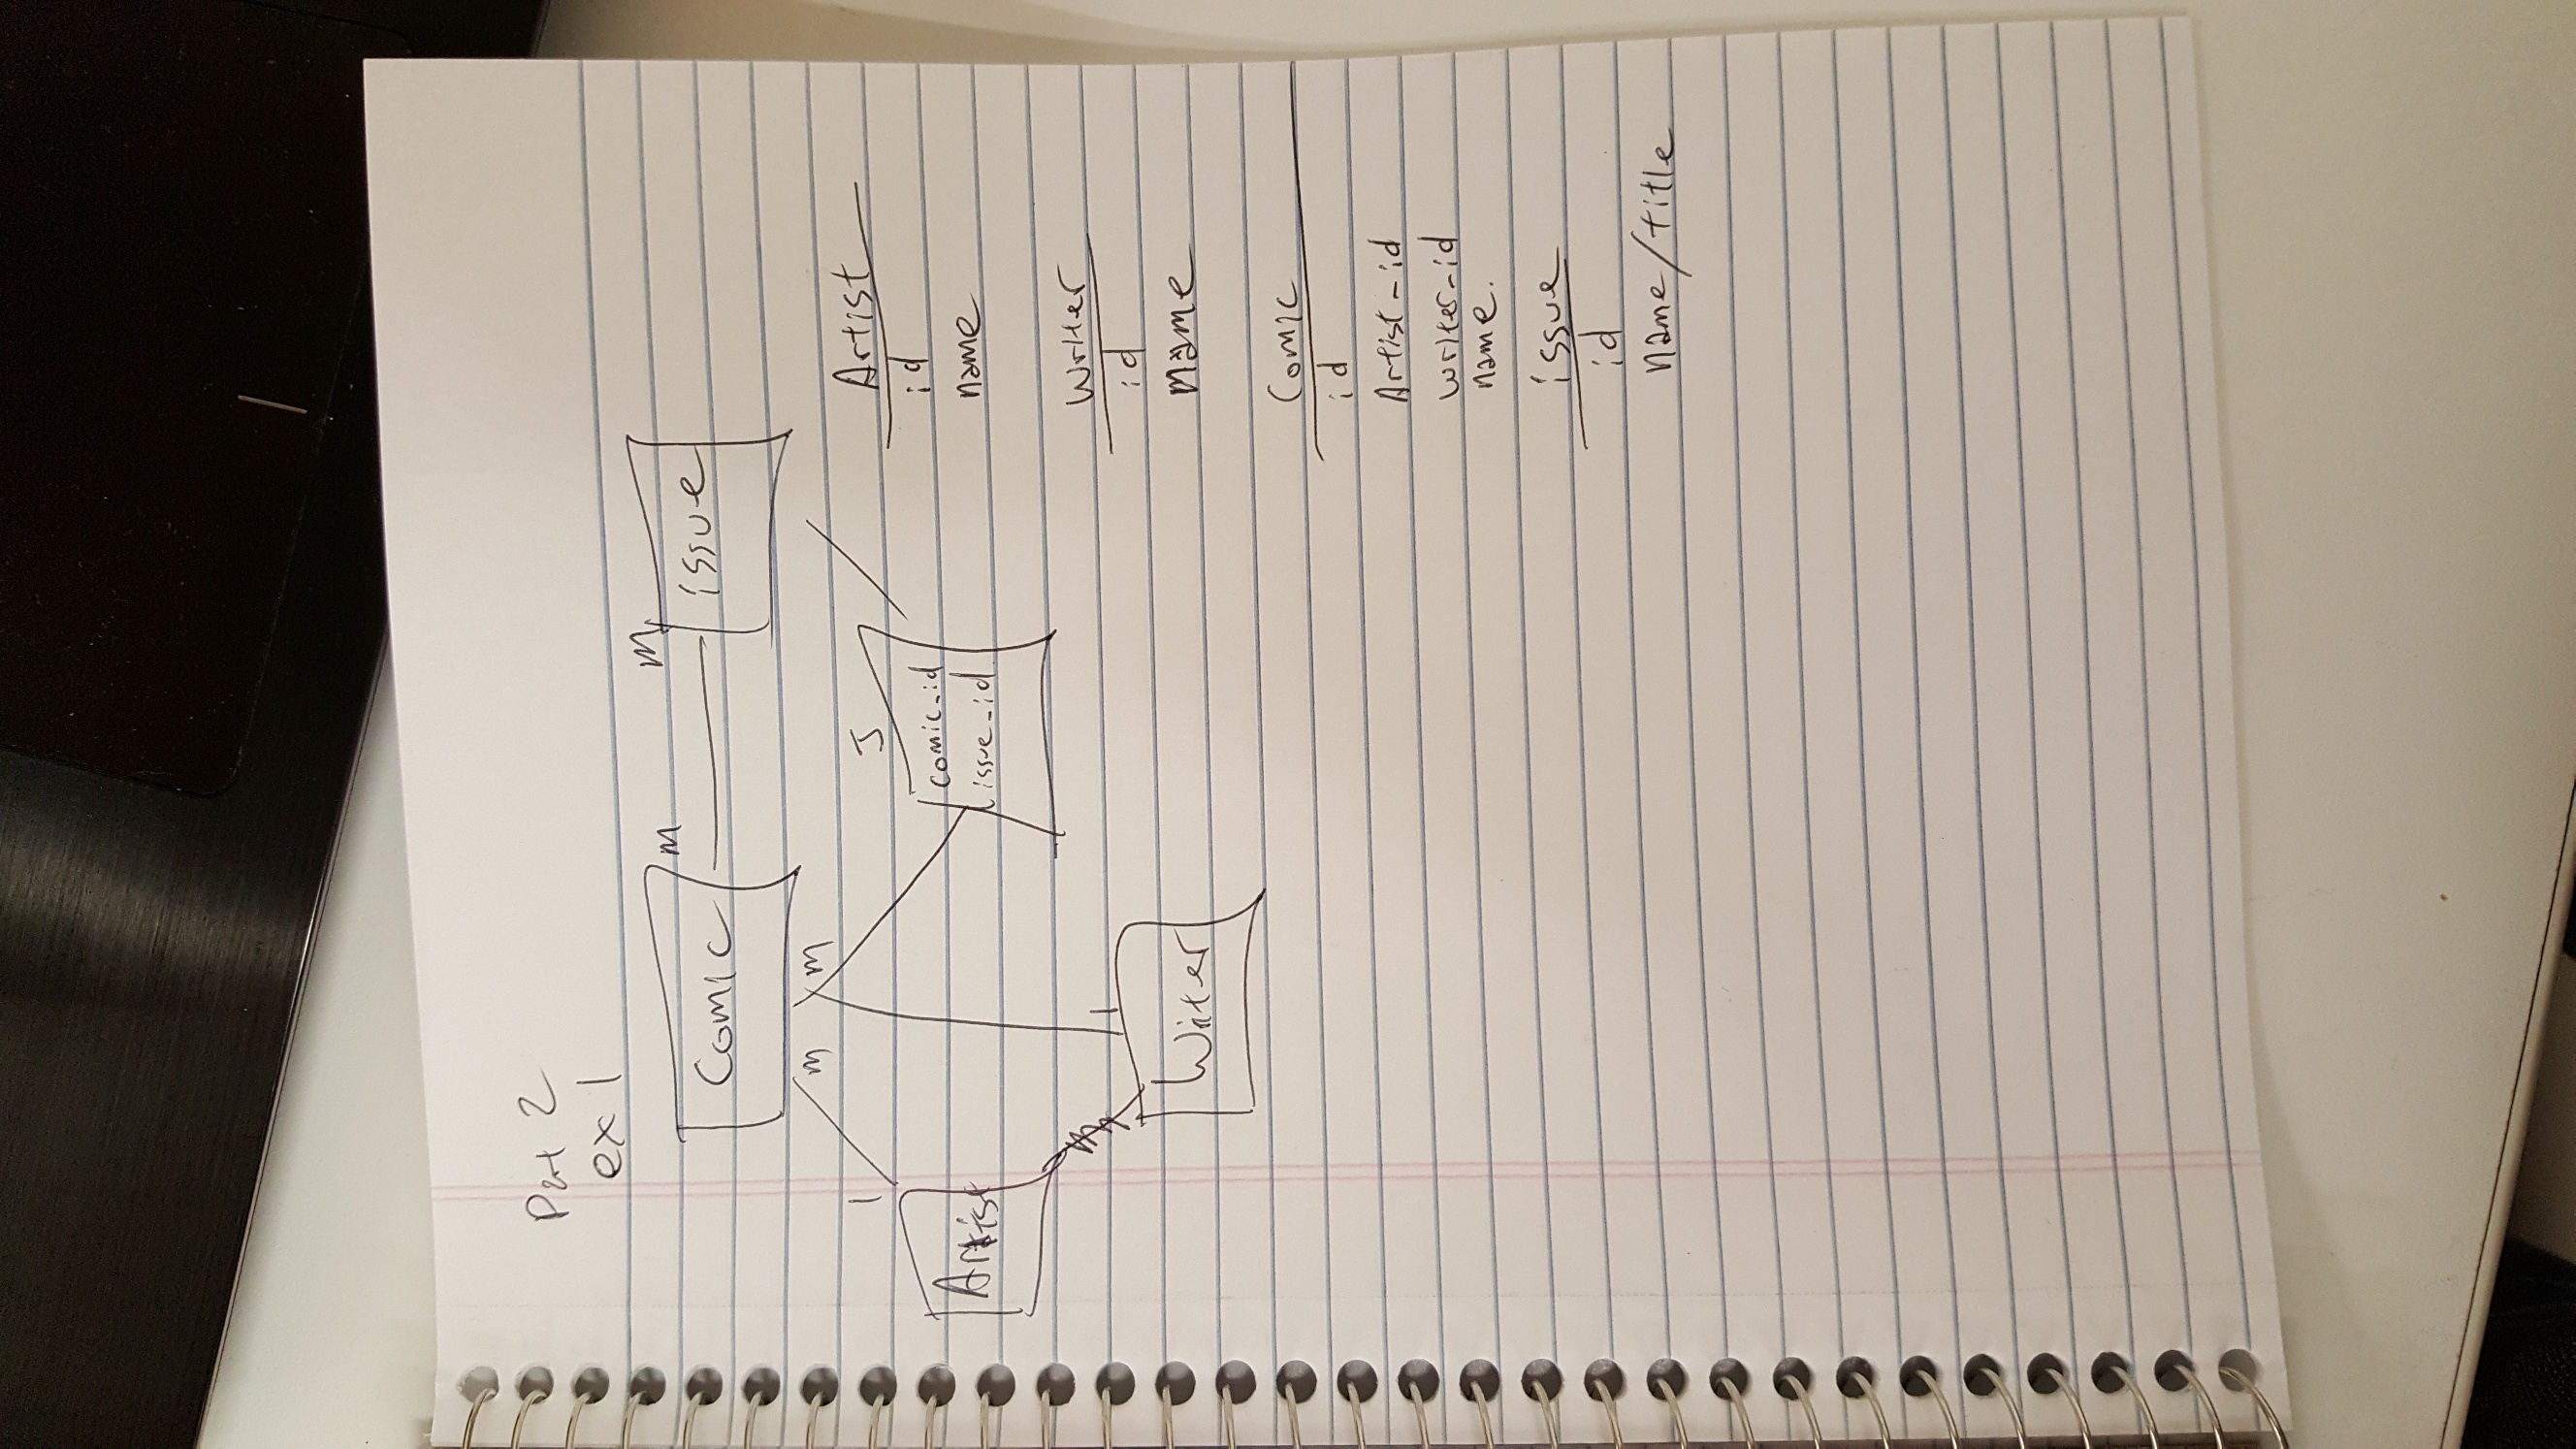 Part 2
ex 1
Comic
m
m
issue
m
m
J
comic_id
issue_id
1
Artist
m
1
Writer
Artist
id
name
Writer
id
name
Comic
id
Artist-id
writer-id
name.
issue
id
name/title